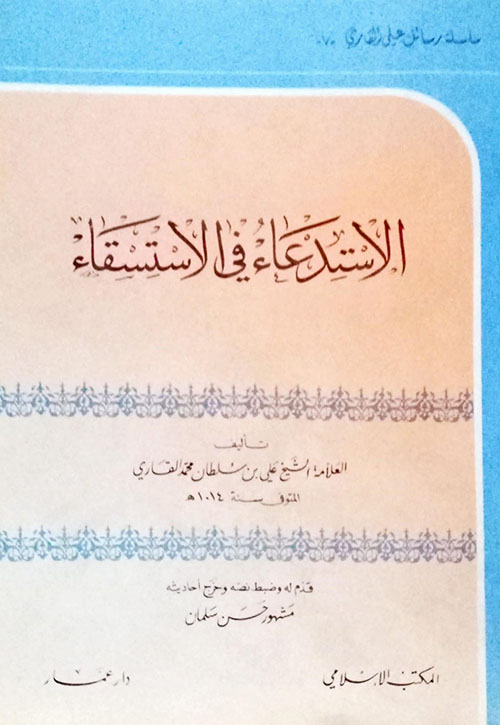 سلسلة رسائل علي القاري -٧-
الاستدعاء في الاستسقاء
تأليف
العلامة الشيخ علي بن سلطان محمد القاري
المتوفى سنة ١٠١٤ هـ
قدم له وضبط نصه وخرج أحاديثه
مشهور حسن سلمان
المكتب الإسلامي
دار عمار